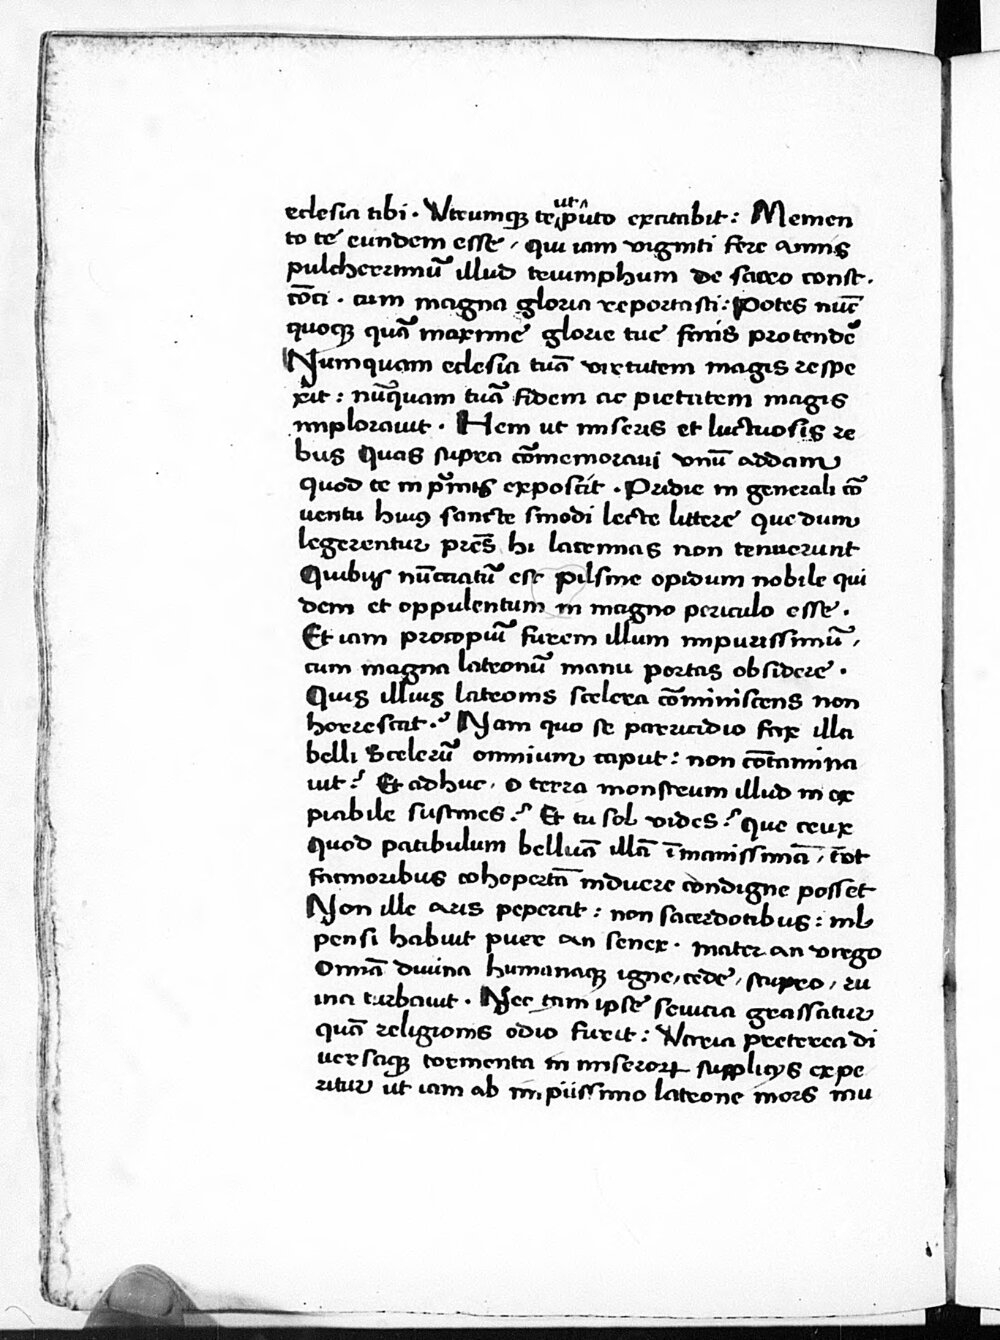 eclesia tibi . Vtrumq̃ te ut pũto excitabit : Memen
to te eundem esse , qui iam viginti fere annis
pulcherrimũ illud triumphum de sacro const .
cõci . cum magna gloria reportasti : Potes nũc
quoq̃ quã maxime glorie tue finis protendẽ
Numquam eclesia tuã virtutem magis respe
xit : nũquam tuã fidem ac pietatem magis
implorauit . Hem ut miseris et luctuosis re
bus quas supra cõmemoraui vnũ addam
quod te in p̃mis exposcit . Pridie in generali cõ
uentu huiꝰ sancte sinodi lecte littere que dum
legerentur pr̃es hi lacrimas non tenuerunt
Quibus nũcciatũ est pilsine opidum nobile qui
dem et oppulentum in magno periculo esse .
Et iam procopiũ furem illum impurissimũ ,
cum magna latronũ manu portas obsidere .
Quis illius latronis scelera cõminiscens non
horrescat . ? Nam quo se parricidio fax illa
belli scelerũ omnium caput : non cõtamina
uit ? Et adhuc , o terra monstrum illud inex
piabile sustines . ? Et tu sol vides . ? que crux
quod patibulum belluã illã ĩmanissimã , tot
facinoribus cohopertã induere condigne posset
Non ille aris pepercit : non sacerdotibus : nil
pensi habuit puer an senex . mater an virgo
Omĩa diuina humanaq̃ igne , cede , stupro , ru
ina turbauit . Nec tam ipse seuicia grassatur
quã religionis odio furit : Varia preterea di
uersaq̃ tormenta in miseroꝝ supplicijs expe
ritur ut iam ab impiissimo latrone mors mu